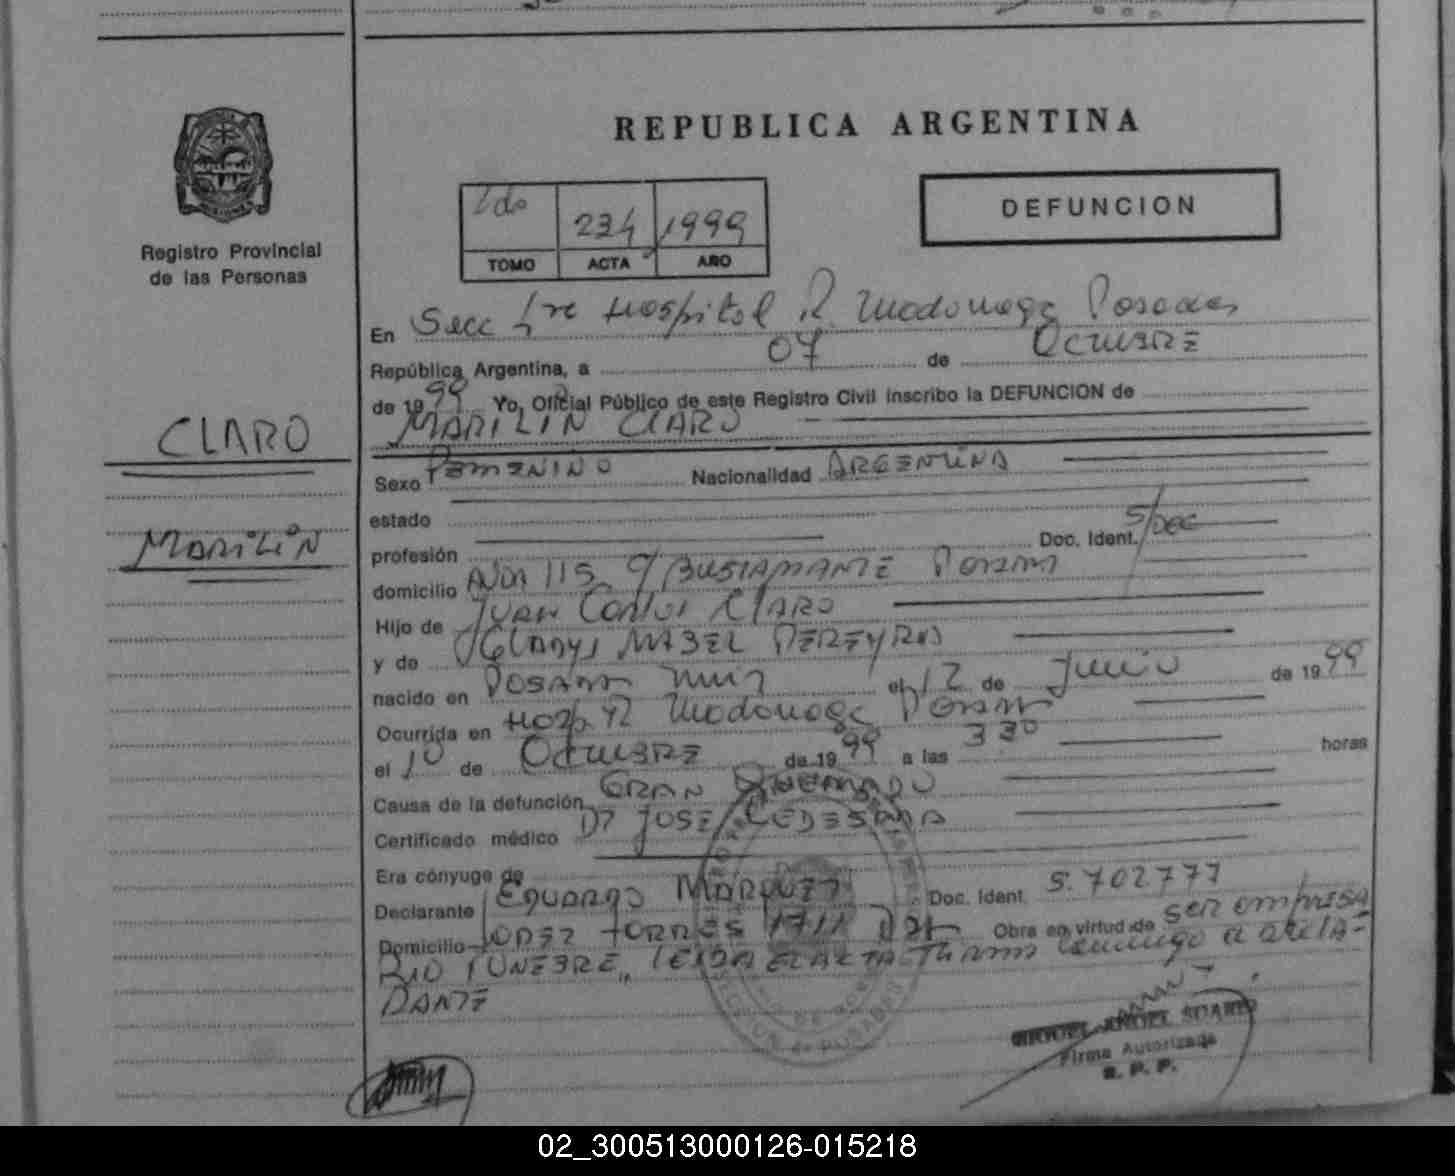 REPUBLICA ARGENTINA
2do 234 1999
TOMO ACTA AÑO
DEFUNCION
Registro Provincial
de las Personas
En Secc 1re Hospital R. Madariaga Posadas
República Argentina, a 07 de OCTUBRE
de 1999 Yo, Oficial Público de este Registro Civil inscribo la DEFUNCION de
MARILIN CLARO
CLARO
MARILIN
Sexo FEMENINO Nacionalidad ARGENTINA
estado
profesión Doc. Ident. S/Doc
domicilio AVDA 115 C/ BUSTAMANTE Posadas
Hijo de JUAN Carlos CLARO
y de GLADYS MABEL PEREYRA
nacido en POSADAS el 12 de Junio de 1999
Ocurrida en Hosp. R. Madariaga Posadas
el 1º de OCTUBRE de 1999 a las 330 horas
Causa de la defunción GRAN QUEMADO
Certificado médico Dr JOSE LEDESMA
Era cónyuge de
Declarante EDUARDO MARQUEZ Doc. Ident. 5.702777
Domicilio LOPEZ TORRES 1711 Obra en virtud de ser empresa
RIO FUNEBRE, LEIDA EL ACTA Firma conmigo el DECLA-
RANTE
MIGUEL ANGEL SUAREZ
Firma Autorizada
R. P. P.
02_300513000126-015218